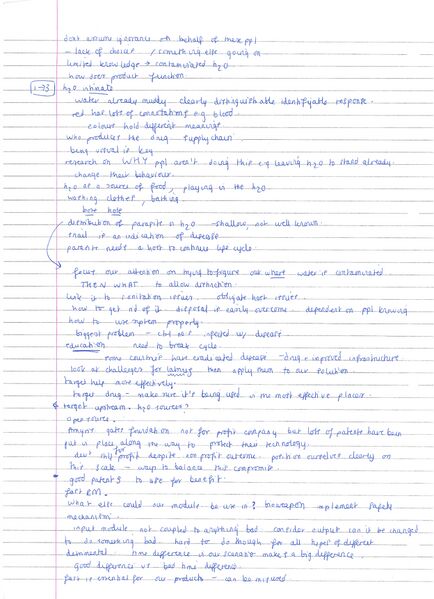 don't assume ignorance on behalf of these ppl
- lack of choice / something else going on
limited knowledge → contaminated h2o
how does product function
1→3 h2o
water already muddy clearly distinguishable identifyable response.
red has lots of conotations e.g blood.
colours hold different meanings
who produces the drug supply chain
being visual is key
research on WHY ppl aren't doing this e.g leaving h2O to stand already.
change their behaviour.
h2O as a source of food, playing in the h2O
washing clothes, bathing.
distribution of parasite in h2O - shallow, not well known.
snail is an indication of disease
parasite needs a host to continue life cycle.
focus our attention on trying to figure out where water is contaminated.
THEN WHAT to allow
link it to sanitation issues. obligate host
how to get rid of it disposal is easily overcome - dependent on ppl knowing
how to use system properly.
biggest problem - infected w/ disease
education need to break cycle.
some countries have eradicated disease - drug + improved infrastructure
look at challenges for then apply them to our solution.
target help more effectively.
target drug - make sure it's being used in the most effective places.
target upstream. h2O sources?
open source.
gates foundation not for profit company but lots of patents have been
put in place along the way to protect their technology.
for profit despite non profit outcome. position ourselves clearly on
this scale - ways to balance this compromise.
good patents to use for benefit.
fact RM.
what else could our module be use in? bioweapon implement safety
mechanism.
input module not coupled to anything bad consider output can it be changed
to do something bad. hard to do though for all types of different
time difference in our scenario makes a big difference.
good difference vs bad time difference.
is essential for our products - can be misused